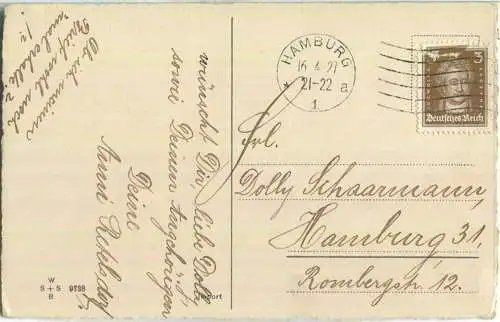 Ob ich meinen
Brief wohl noch
mal erhalte?
!:
wünscht Dir, liebe Dolly
sowie Deinen Angehörigen
Deine
Anni
W
S + S 9738
B
HAMBURG
16.4.27
21-22 a
* 1
3
Deutsches Reich
Frl.
Dolly Schaarmann,
Hamburg 31,
Rombergstr. 12.